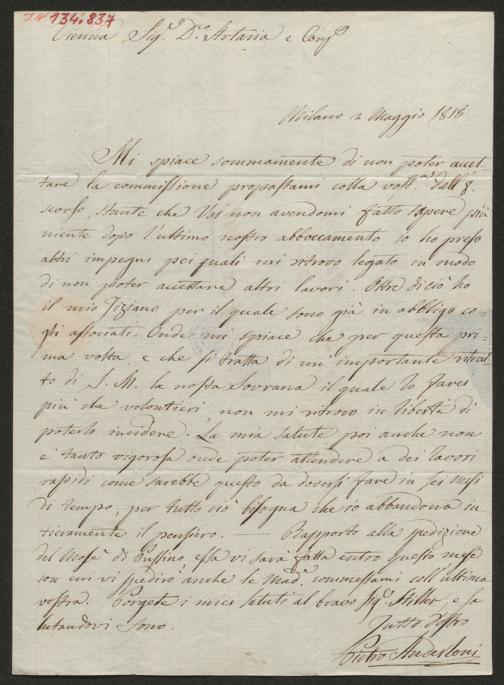 134.837
Vienna Sig.ri D.co Artaria e Comp.o
Milano 2 Maggio 1815
Mi spiace sommamente di non poter accet=
tare la commissione propostami colla vost.a dall' 8.
scorso, stante che Voi non avendomi fatto sapere più
niente dopo l'ultimo nostro abboccamento io ho preso
altri impegni pei quali mi ritrovo legato in modo
di non poter accettare altri lavori. Oltre di ciò ho
il mio Tiziano per il quale sono già in obbligo co=
gli associati. Onde mi spiace che per questa pri=
ma volta, e che si tratta di un' importante ritrat=
to di S. M. la nostra Sovrana il quale lo farei
più che volontieri non mi ritrovo in libertà di
poterlo incidere. La mia salute poi anche non
è tanto vigorosa onde poter attendere a dei lavori
rapidi come sarebbe questo da doversi fare in sei mesi
di tempo; per tutto ciò bisogna che io abbandona in=
tieramente il pensiero. — Rapporto alla spedizione
del Mosè di Pussino essa vi sarà fatta entro questo mese
con cui vi spedirò anche le Mad.e commessami coll' ultima
vostra. Porgete i miei saluti al bravo Sig.r Miller e sa
lutandovi sono.
Tutto Vostro
Pietro Anderloni